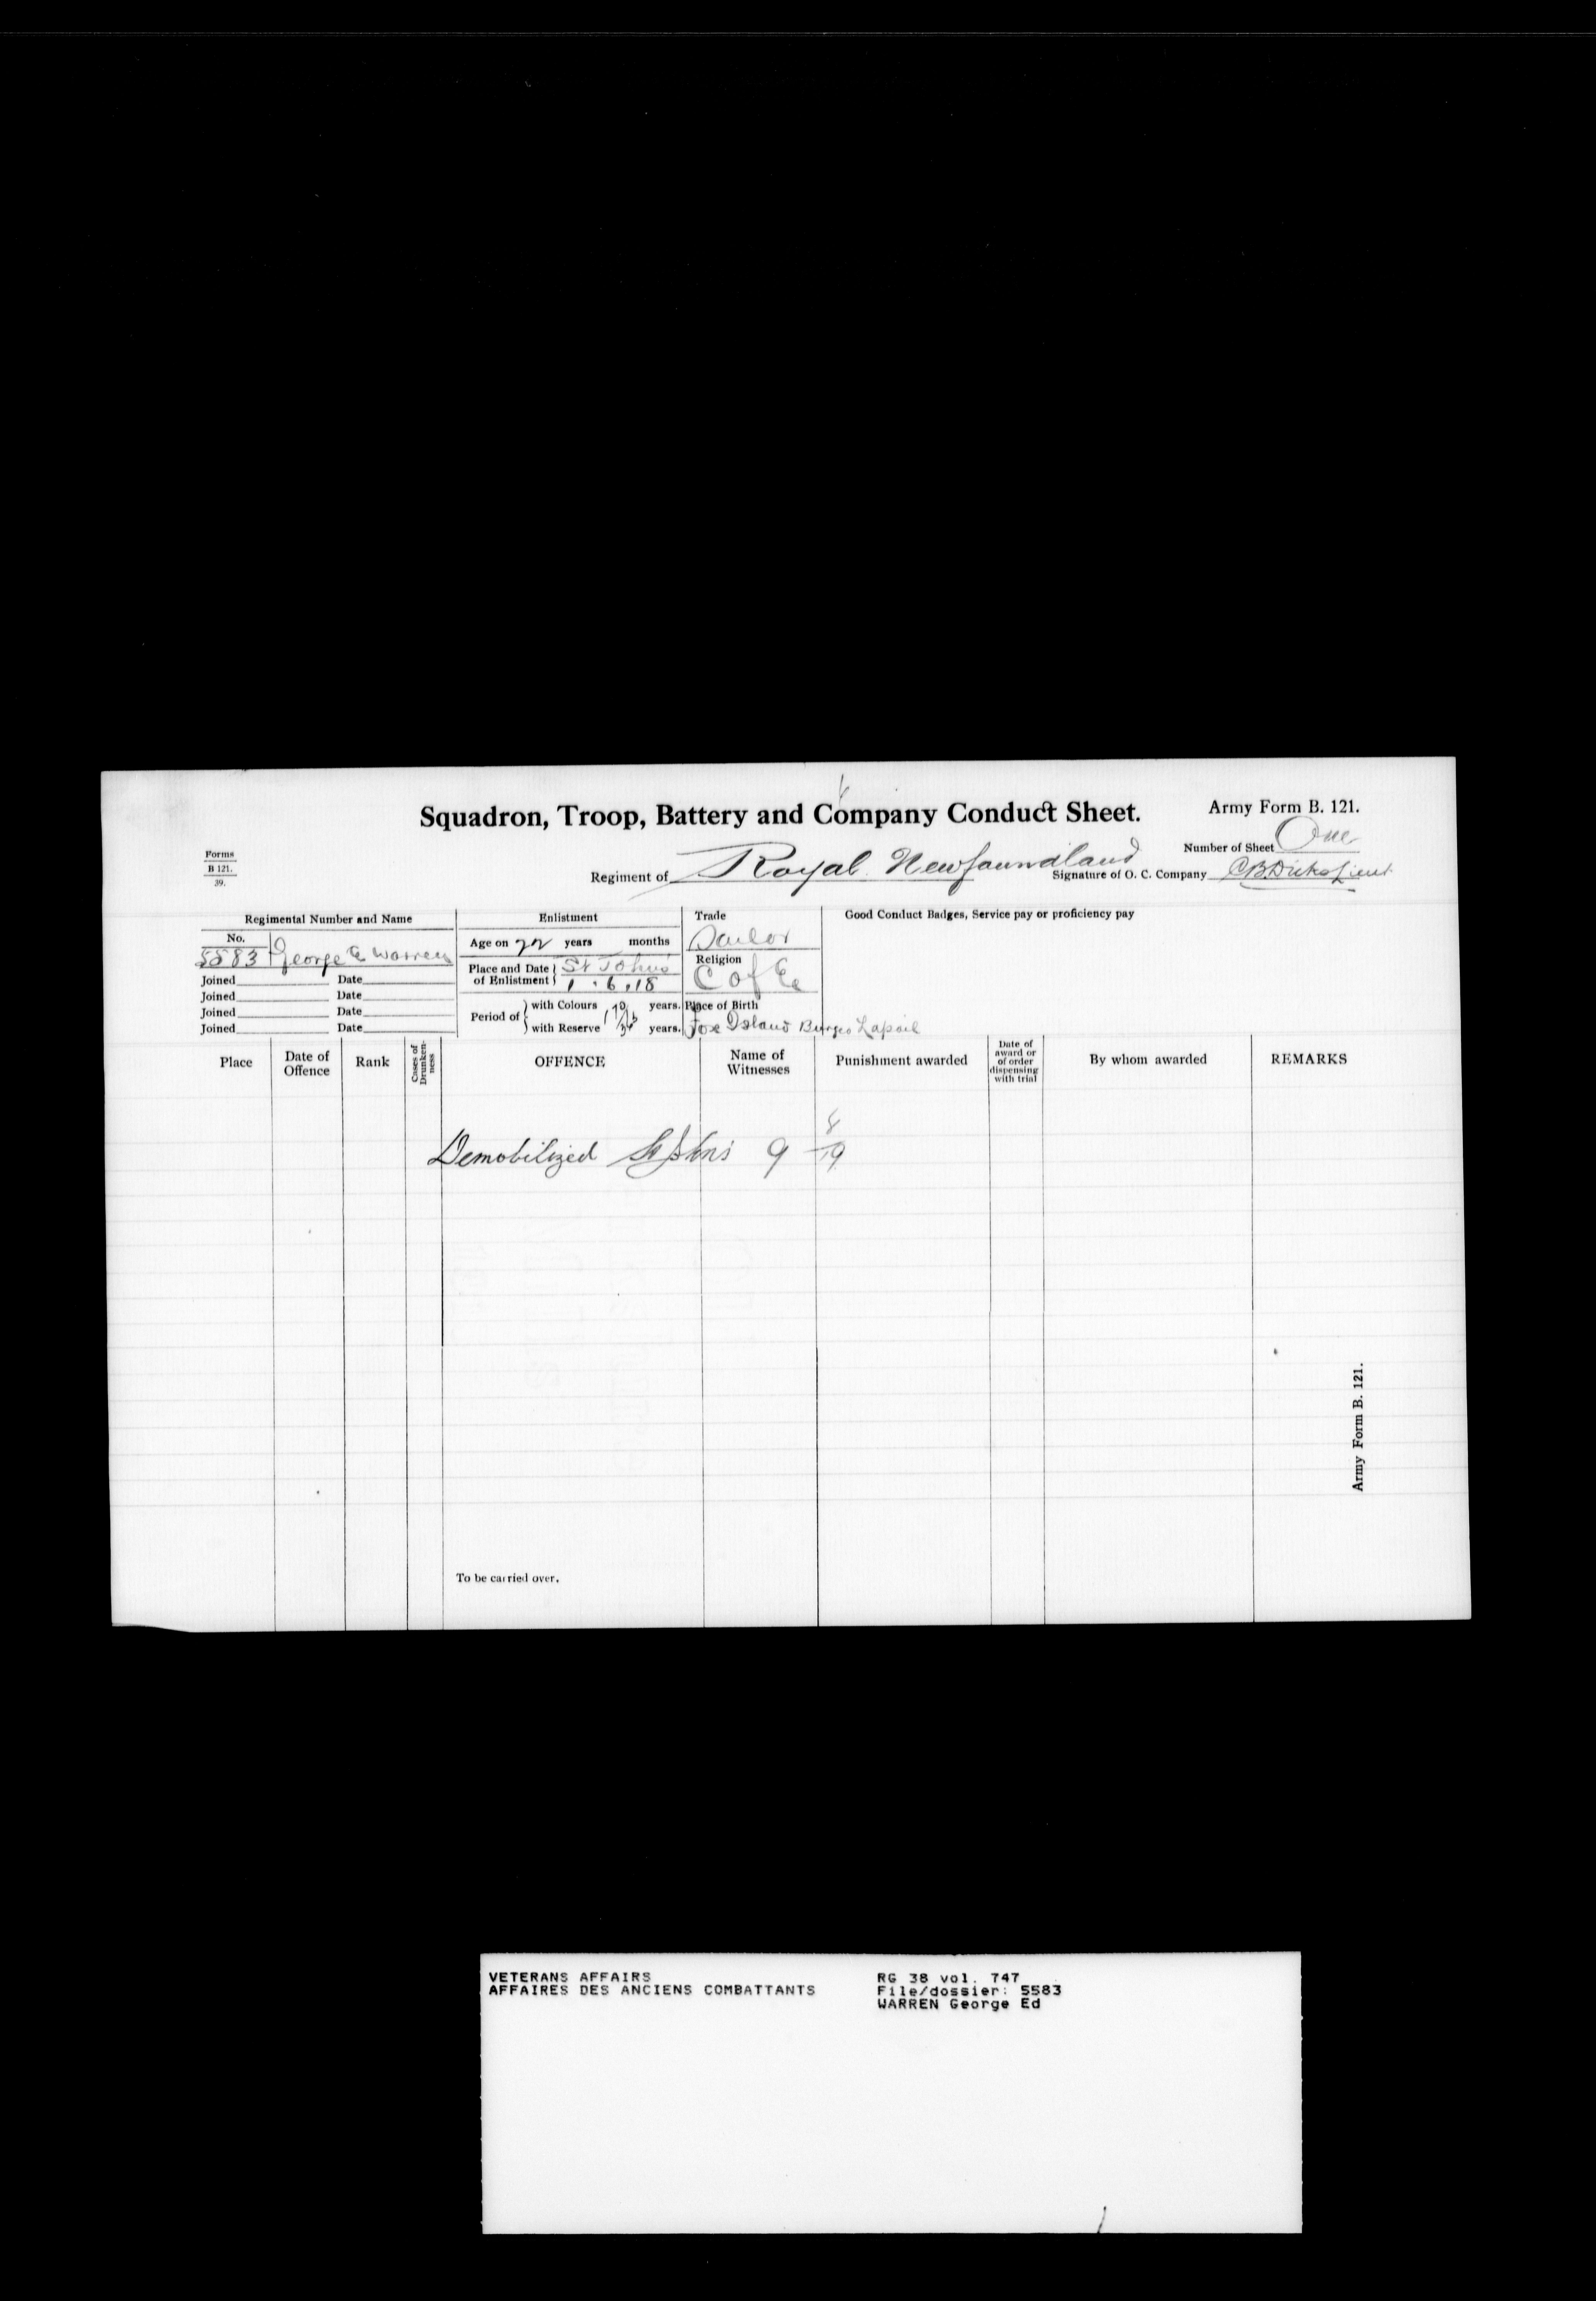 Squadron, Troop, Battery and Company Conduct Sheet.
Army Form B. 121.
Number of Sheet One
Forms
B 121.
39.
Regiment of Royal Newfoundland
Signature of O. C. Company C B Dicks Lieut
Regimental Number and Name
No.
5583 George E Warren
Joined Date
Joined Date
Joined Date
Joined Date
Enlistment
Age on 22 years months
Place and Date of Enlistment St Johns
1.6.18
Period of with Colours years.
with Reserve years.
Trade
Sailor
Religion
C of E
Place of Birth
Fox Island Burgeo Lapoil
Good Conduct Badges, Service pay or proficiency pay
Place
Date of Offence
Rank
Cases of Drunken-ness
OFFENCE
Name of Witnesses
Punishment awarded
Date of award or of order dispensing with trial
By whom awarded
REMARKS
Demobilized St Johns 9 8/19
To be carried over.
Army Form B. 121.
VETERANS AFFAIRS
AFFAIRES DES ANCIENS COMBATTANTS
RG 38 vol. 747
File/dossier: 5583
WARREN George Ed